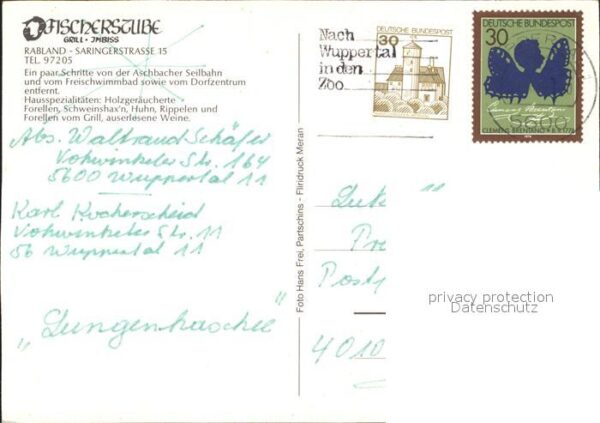 FISCHERSTUBE
GRILL - IMBISS
RABLAND - SARINGERSTRASSE 15
TEL. 97205
Ein paar Schritte von der Aschbacher Seilbahn
und vom Freischwimmbad sowie vom Dorfzentrum
entfernt.
Hausspezialitäten: Holzgeräucherte
Forellen, Schweinshax'n, Huhn, Rippelen und
Forellen vom Grill, auserlesene Weine.
Abs. Waltraud Schäfer
Vohwinkeler Str. 164
5600 Wuppertal 11
Karl Kocherscheid
Vohwinkeler Str. 11
56 Wuppertal 11
„Lungenhaschee"
Foto Hans Frei, Partschins - Fliridruck Meran
Nach
Wuppertal
in den
Zoo
DEUTSCHE BUNDESPOST
30
DEUTSCHE BUNDESPOST
30
Clemens Brentano
CLEMENS BRENTANO * 8.9.1778
5600
Post
4010
privacy protection
Datenschutz